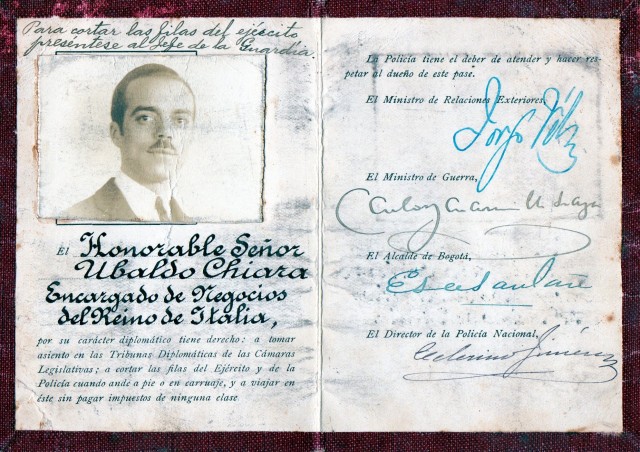 Para cortar las filas del ejército
preséntese al Jefe de la Guardia.
El Honorable Señor
Ubaldo Chiara
Encargado de Negocios
del Reino de Italia,
por su carácter diplomático tiene derecho: a tomar
asiento en las Tribunas Diplomáticas de las Cámaras
Legislativas; a cortar las filas del Ejército y de la
Policía cuando ande a pie o en carruaje, y a viajar en
éste sin pagar impuestos de ninguna clase
La Policía tiene el deber de atender y hacer res-
petar al dueño de este pase.
El Ministro de Relaciones Exteriores,
El Ministro de Guerra,
El Alcalde de Bogotá,
El Director de la Policía Nacional,